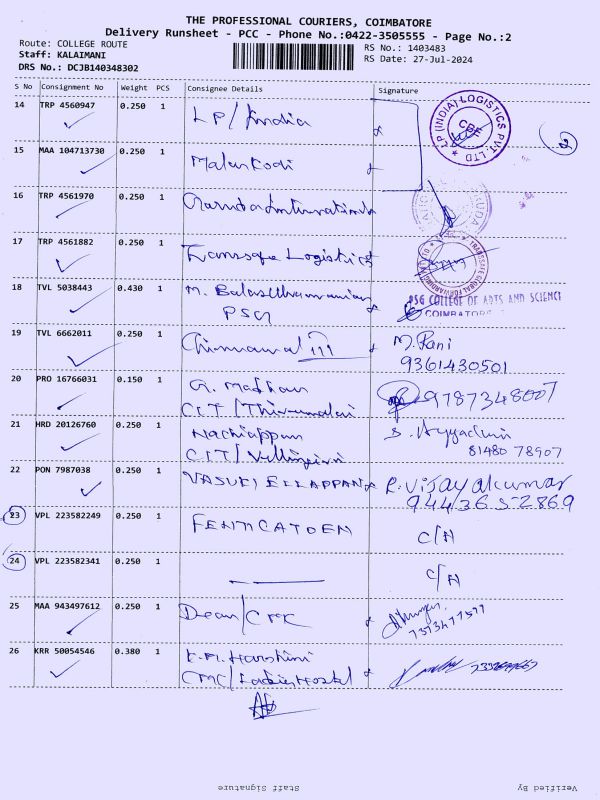 THE PROFESSIONAL COURIERS, COIMBATORE
Delivery Runsheet - PCC - Phone No.:0422-3505555 - Page No.:2
Route: COLLEGE ROUTE
Staff: KALAIMANI
DRS No.: DCJB140348302
RS No.: 1403483
RS Date: 27-Jul-2024
S No Consignment No Weight PCS Consignee Details Signature
14 TRP 4560947 0.250 1 LP/India
LP (INDIA) LOGISTICS PVT. LTD
CBE
2
15 MAA 104713730 0.250 1 Malarkodi
16 TRP 4561970 0.250 1
17 TRP 4561882 0.250 1 Transsafe Logistics
18 TVL 5038443 0.430 1 M. Balasubramanian
PSG
PSG COLLEGE OF ARTS AND SCIENCE
COIMBATORE
19 TVL 6662011 0.250 1 M. Rani
9361430501
20 PRO 16766031 0.150 1 G. Madhan
C.I.T/Thirumalai
9787348007
21 HRD 20126760 0.250 1 Nachiappan
C.I.T/Vellingiri
81480 78907
22 PON 7987038 0.250 1 VASUKI ELLAPPAN R. Vijayakumar
944365-2869
23 VPL 223582249 0.250 1 C/A
24 VPL 223582341 0.250 1 C/A
25 MAA 943497612 0.250 1 Dean/
26 KRR 50054546 0.380 1 Harshini
CMC/Ladies Hostel
Staff Signature
Verified By